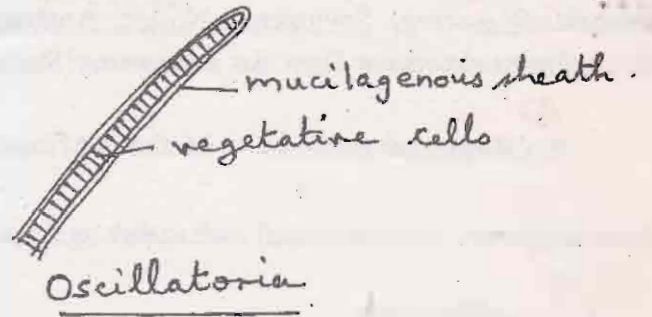 mucilagenous sheath.
vegetative cells
Oscillatoria